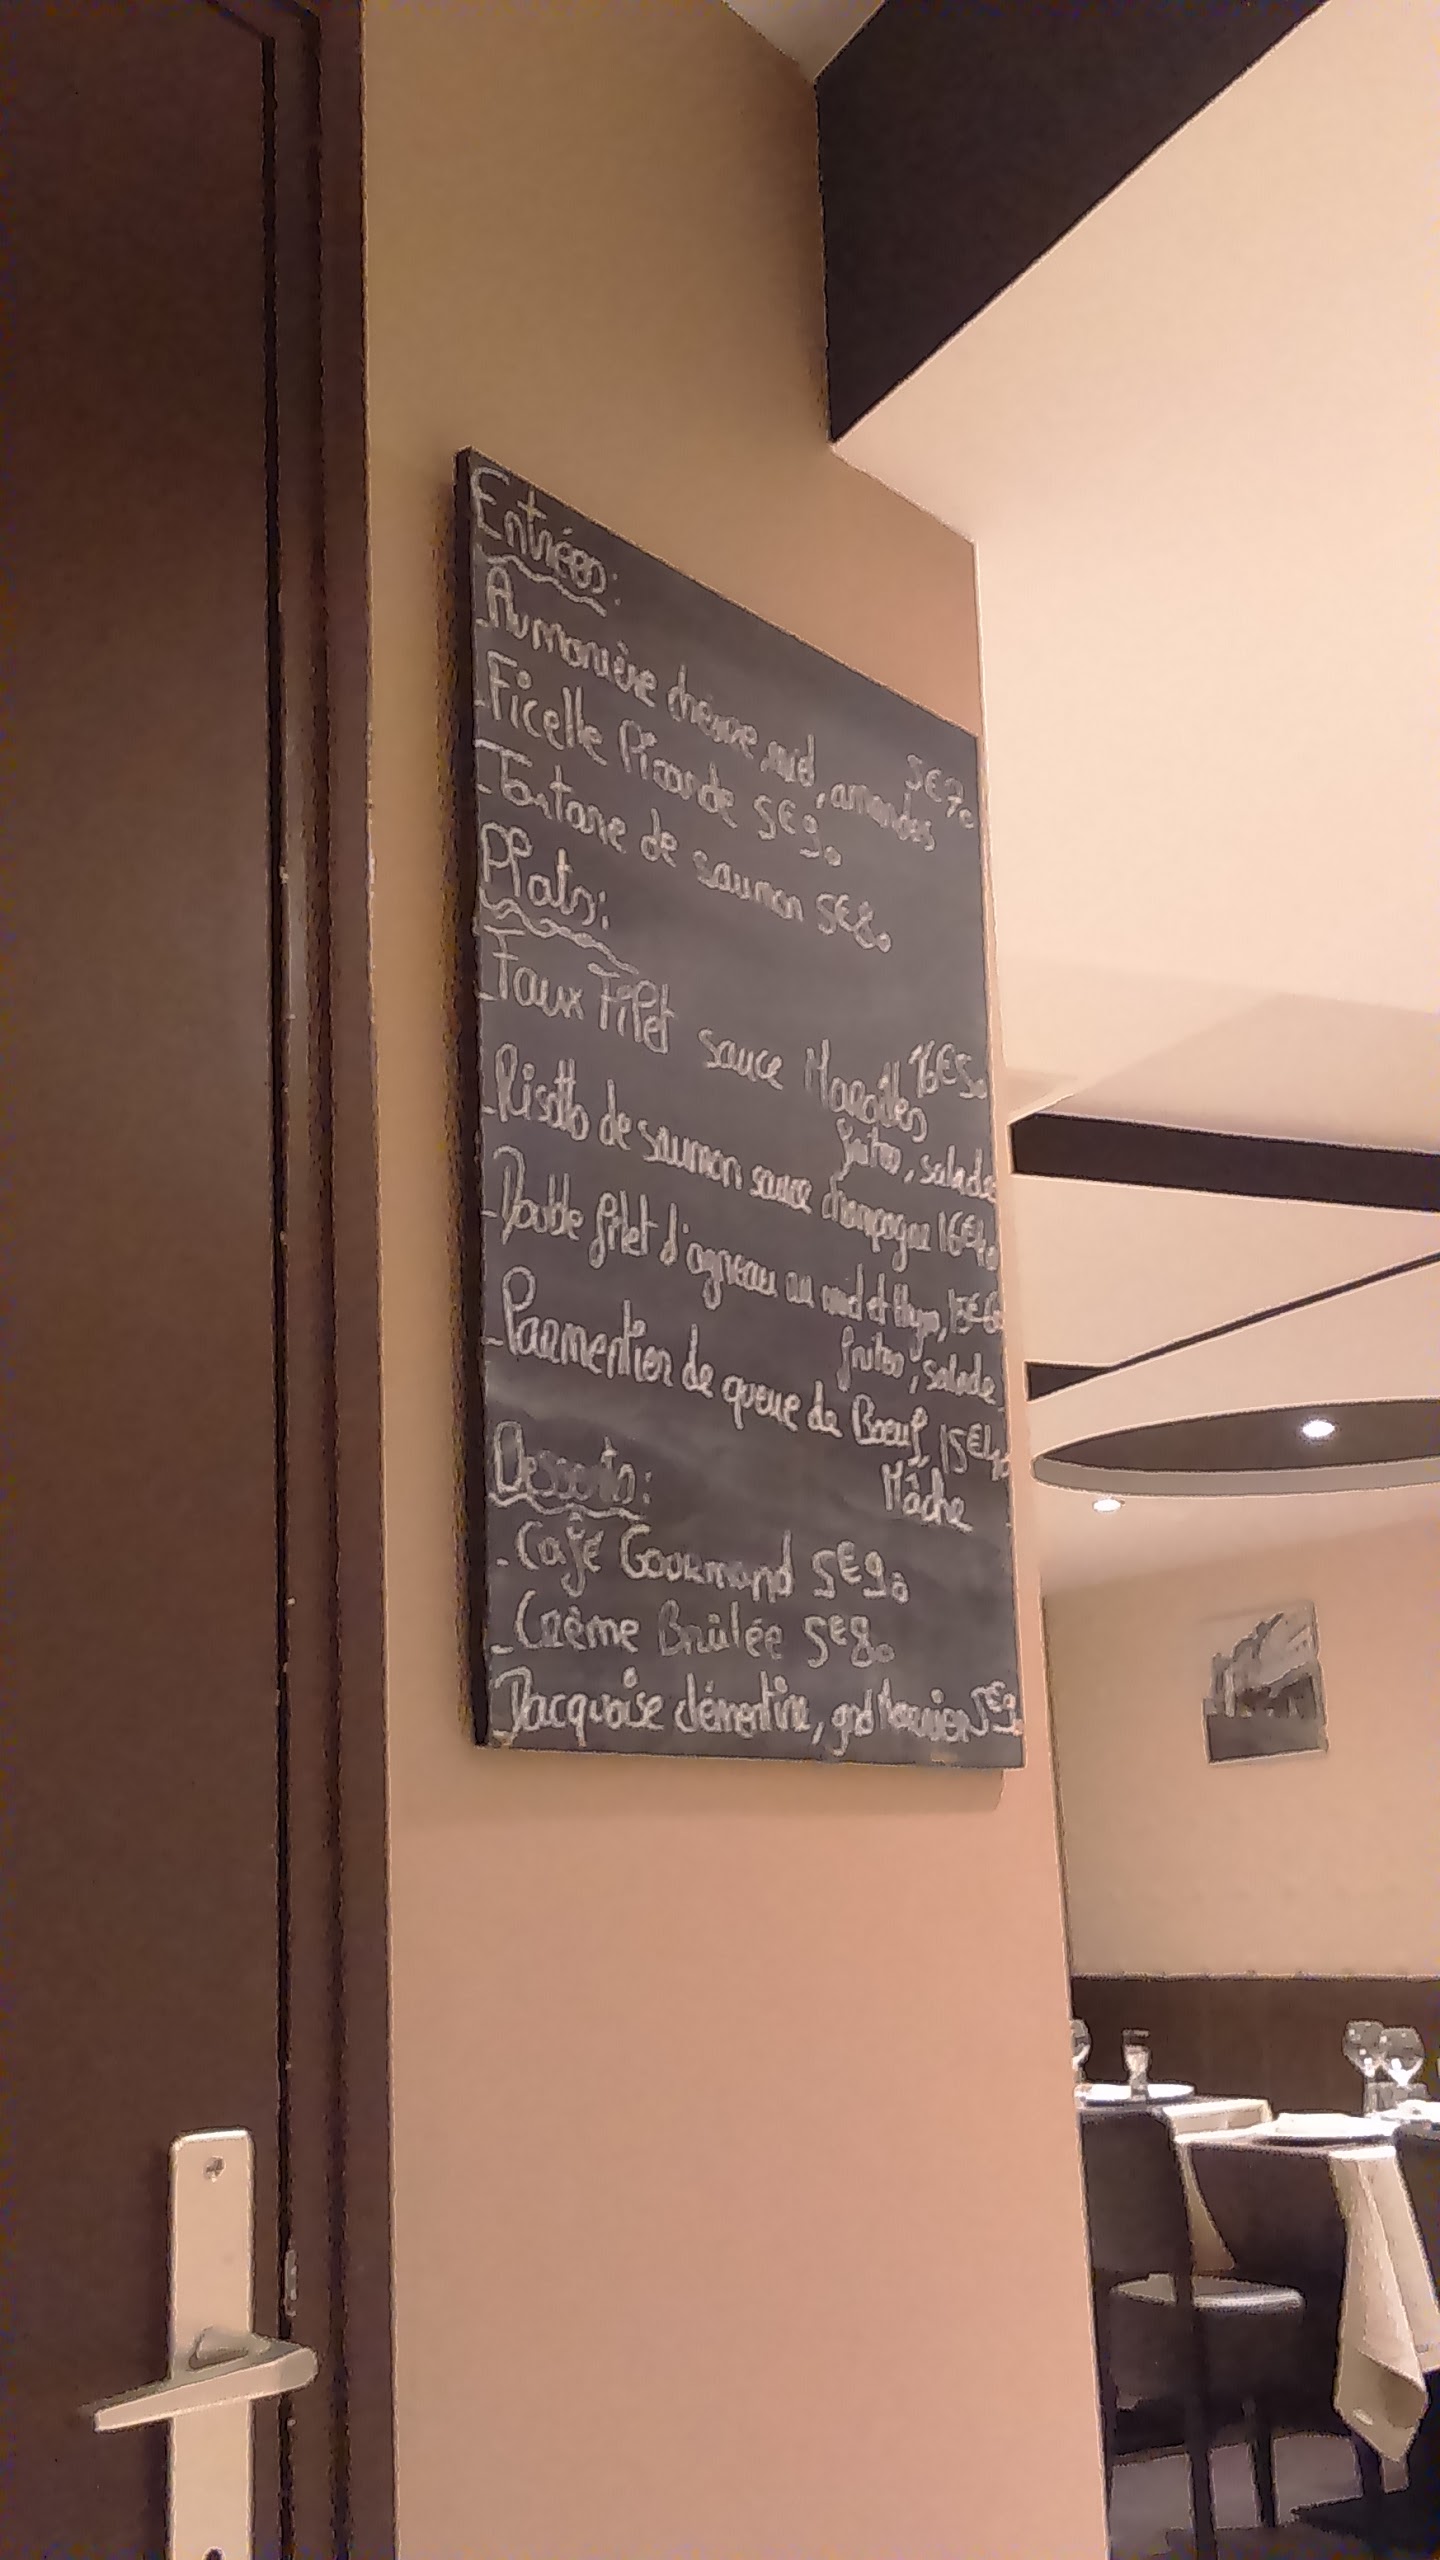 Entrées:
-Aumonière chèvre, miel, amandes 5€70
-Ficelle Picarde 5€90
-Tartare de saumon 5€80
Plats:
-Faux Filet sauce Maroilles 16€50
frites, salade
-Risotto de saumon sauce champagne 16€40
-Double filet d'agneau au miel et thym, 15€60
frites, salade
-Parmentier de queue de Boeuf, 15€40
Mâche
Desserts:
-Café Gourmand 5€90
-Crème Brûlée 5€80
-Dacquoise clémentine, grd Marnier 5€90